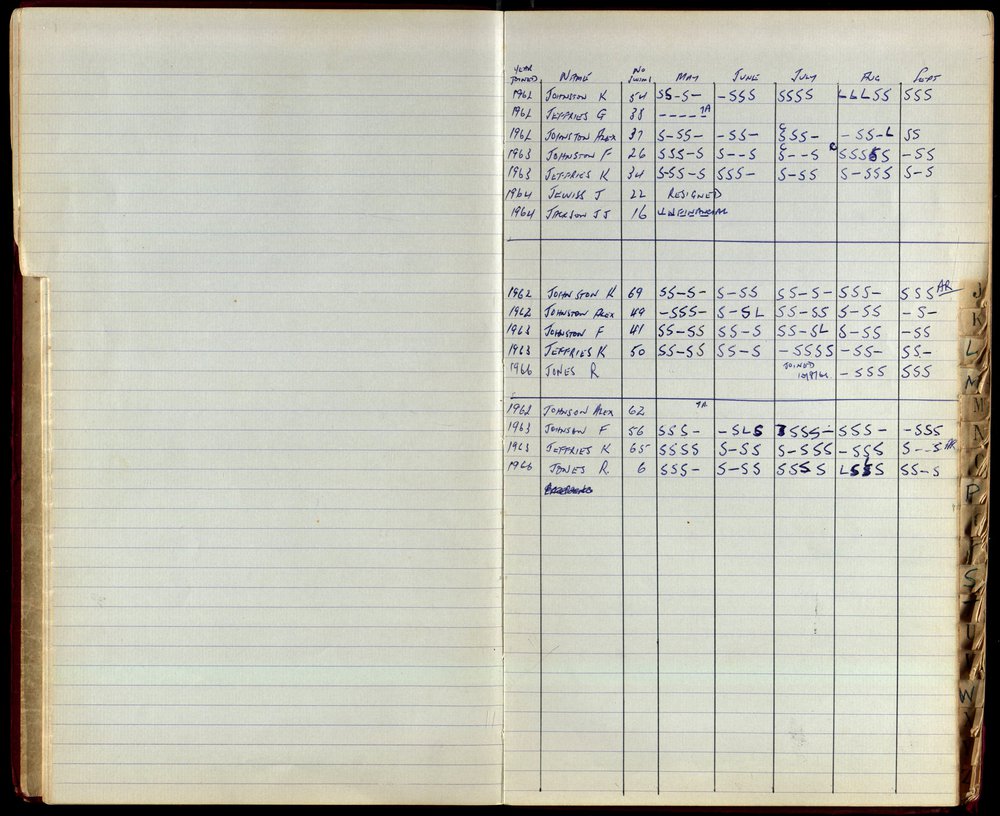 YEAR JOINED NAME NO SWIMS MAY JUNE JULY AUG SEPT
1962 JOHNSTON K 54 SS-S- -SSS SSSS LLLSS SSS
1962 JEFFRIES G 38 ----- TA
1962 JOHNSTON ALEX 37 S-SS- -SS- SSS- -SS-L SS
1963 JOHNSTON F 26 SSS-S S--S S--S SSSSS -SS
1963 JEFFRIES K 34 S-SS-S SSS- S-SS S-SSS S-S
1964 JEWISS J 22 RESIGNED
1964 JACKSON JJ 16 UNFINANCIAL
1962 JOHNSTON K 69 SS-S- S-SS SS-S- SSS- SSS AR
1962 JOHNSTON ALEX 49 -SSS- S-SL SS-SS S-SS -S-
1963 JOHNSTON F 41 SS-SS SS-S SS-SL S-SS -SS
1963 JEFFRIES K 50 SS-SS SS-S -SSSS -SS- SS-
1966 JONES R JOINED -SSS SSS
1962 JOHNSON ALEX 62 TA
1963 JOHNSON F 56 SSS- -SLS SSSS- SSS- -SSS
1963 JEFFRIES K 65 SSSS S-SS S-SSS -SSS S--S AR
1966 JONES R. 6 SSS- S-SS SSSS LSSS SS-S
J
K
L
M
M
N
O
P
S
T
U
W
Y